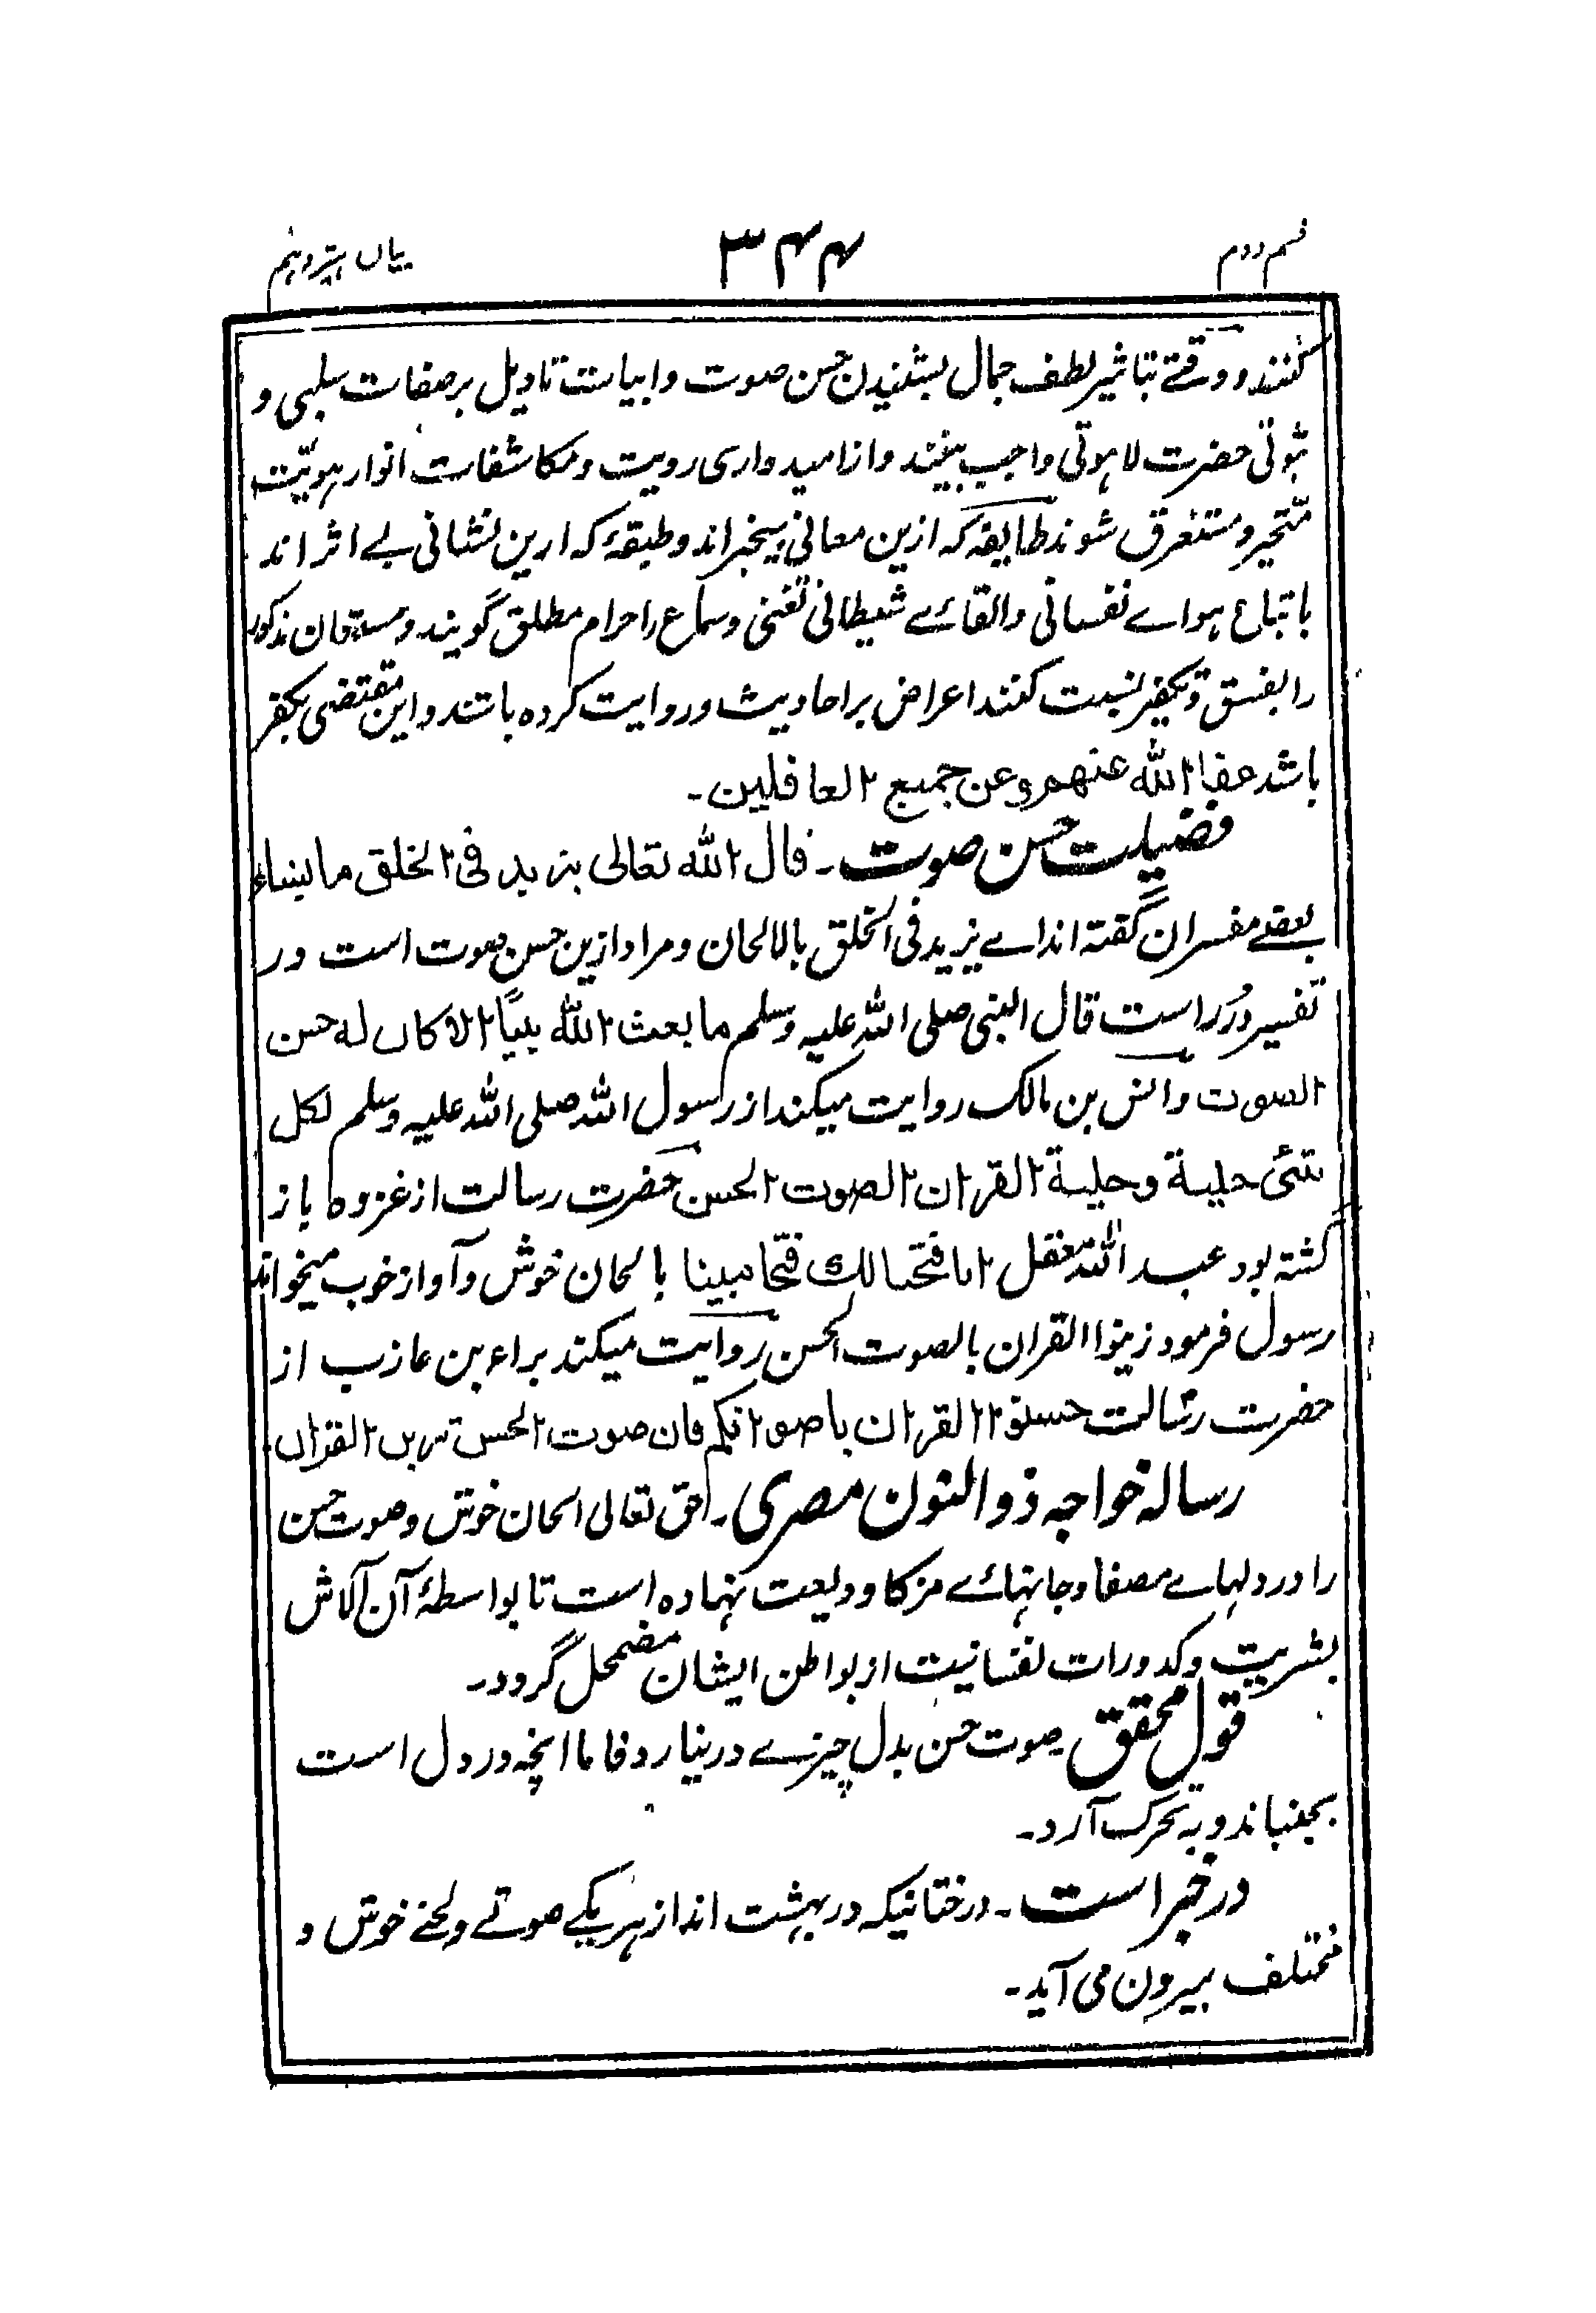 قسم دوم ۳۴۴ بیان ہیژدہم
کنند و وقتے بتاثیر لطف جمال بشنیدن حسن صوت و ابیات تاویل بر صفات سلبی و
ثبوتی حضرت لاہوتی واجب بینند و از امیدواری رویت و مکاشفات انوار ہویّت
متحیر و مستغرق شوند طایفہ کہ ازین معانی بیخبر اند و طبقۂ کہ ازین نشانی بے اثر اند
باتباع ہواے نفسانی و القائے شیطانی تغنی و سماع را حرام مطلق گویند و مستمعان مذکور
را بفسق و تکفیر نسبت کنند اعراض بر احادیث و روایت کردہ باشند و این مقتضی بکفر
باشد عفا الله عنهم وعن جمیع الغافلین۔
فضیلت حسن صوت۔ قال الله تعالى یزید فی الخلق ما یشاء
بعضے مفسران گفتہ اند اے یزید فی الخلق بالالحان و مراد ازین حسن صوت است و در
تفسیر دُرر است قال النبی صلی اللہ علیہ وسلم ما بعث الله نبیًا الا کان له حسن
الصوت و انس بن مالک روایت میکند از رسول اللہ صلی اللہ علیہ وسلم لکل
شئی حلیة وحلیة القران الصوت الحسن حضرت رسالت از غزوہ باز
گشتہ بود عبد اللہ مغفل انا فتحنا لك فتحا مبینا بالحان خوش و آواز خوب میخواند
رسول فرمود زینوا القران بالصوت الحسن روایت میکند براء بن عازب از
حضرت رسالت حسنوا القران باصواتکم فان صوت الحسن تزین القران
رسالہ خواجہ ذو النون مصری۔ حق تعالی الحان خوش و صوت حسن
را در دلہاے مصفا و جانہائے مزکا ودیعت نہادہ است تا بواسطۂ آن آلاش
بشریت و کدورات نفسانیت از بواطن ایشان مضمحل گردد۔
قول محقق۔ صوت حسن بدل چیزے در نیارد فاما انچہ در دل است
بجنباند و بہ تحرک آرد۔
در خبر است۔ درختانیکہ در بہشت اند از ہر یکے صوتے و لحنے خوش و
مختلف بیرون می آید۔